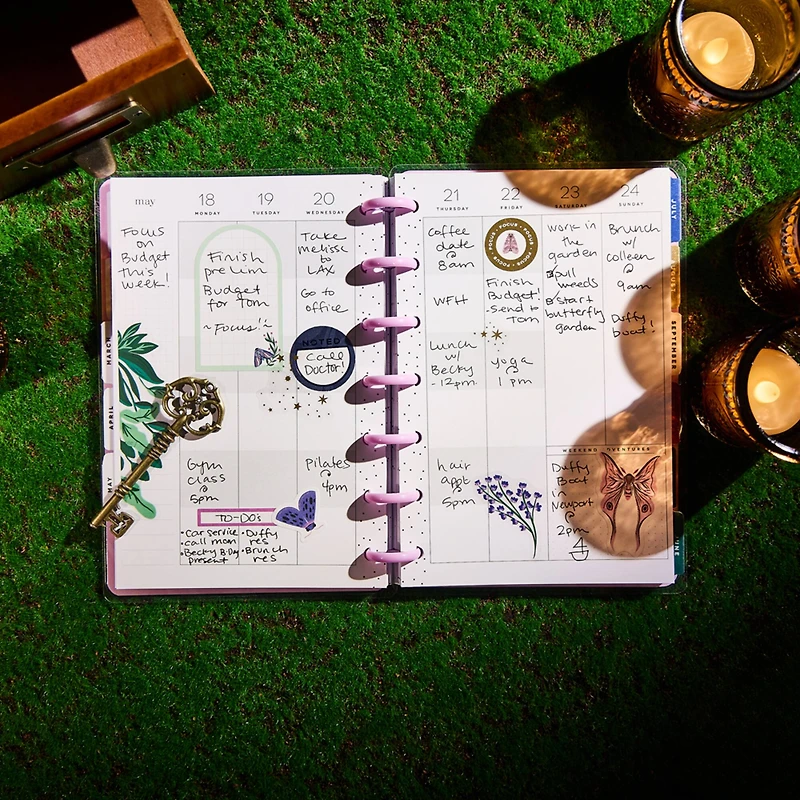 may
18
MONDAY
19
TUESDAY
20
WEDNESDAY
Focus
on
Budget
this
week!
Finish
prelim
Budget
for Tom
~Focus!~
Take
melissa
to
LAX
Go to
office
NOTED
Call
Doctor!
Gym
class
@
5pm
Pilates
@
4pm
TO-DO's
• Car service
• call mom
• Becky B-Day
present
• Duffy
res
• Brunch
res
MARCH
APRIL
MAY
21
THURSDAY
22
FRIDAY
23
SATURDAY
24
SUNDAY
Coffee
date
@
8am
WFH
Lunch
w/
Becky
-12pm
hair
appt
@
5pm
FOCUS • FOCUS • FOCUS • FOCUS •
Finish
Budget!
-Send to
Tom
yoga
@
1 pm
work in
the
garden
pull
weeds
start
butterfly
garden
Brunch
w/
colleen
@
9am
Duffy
boat!
WEEKEND ADVENTURES
Duffy
Boat
in
Newport
@
2pm
JULY
AUGUST
SEPTEMBER
JUNE